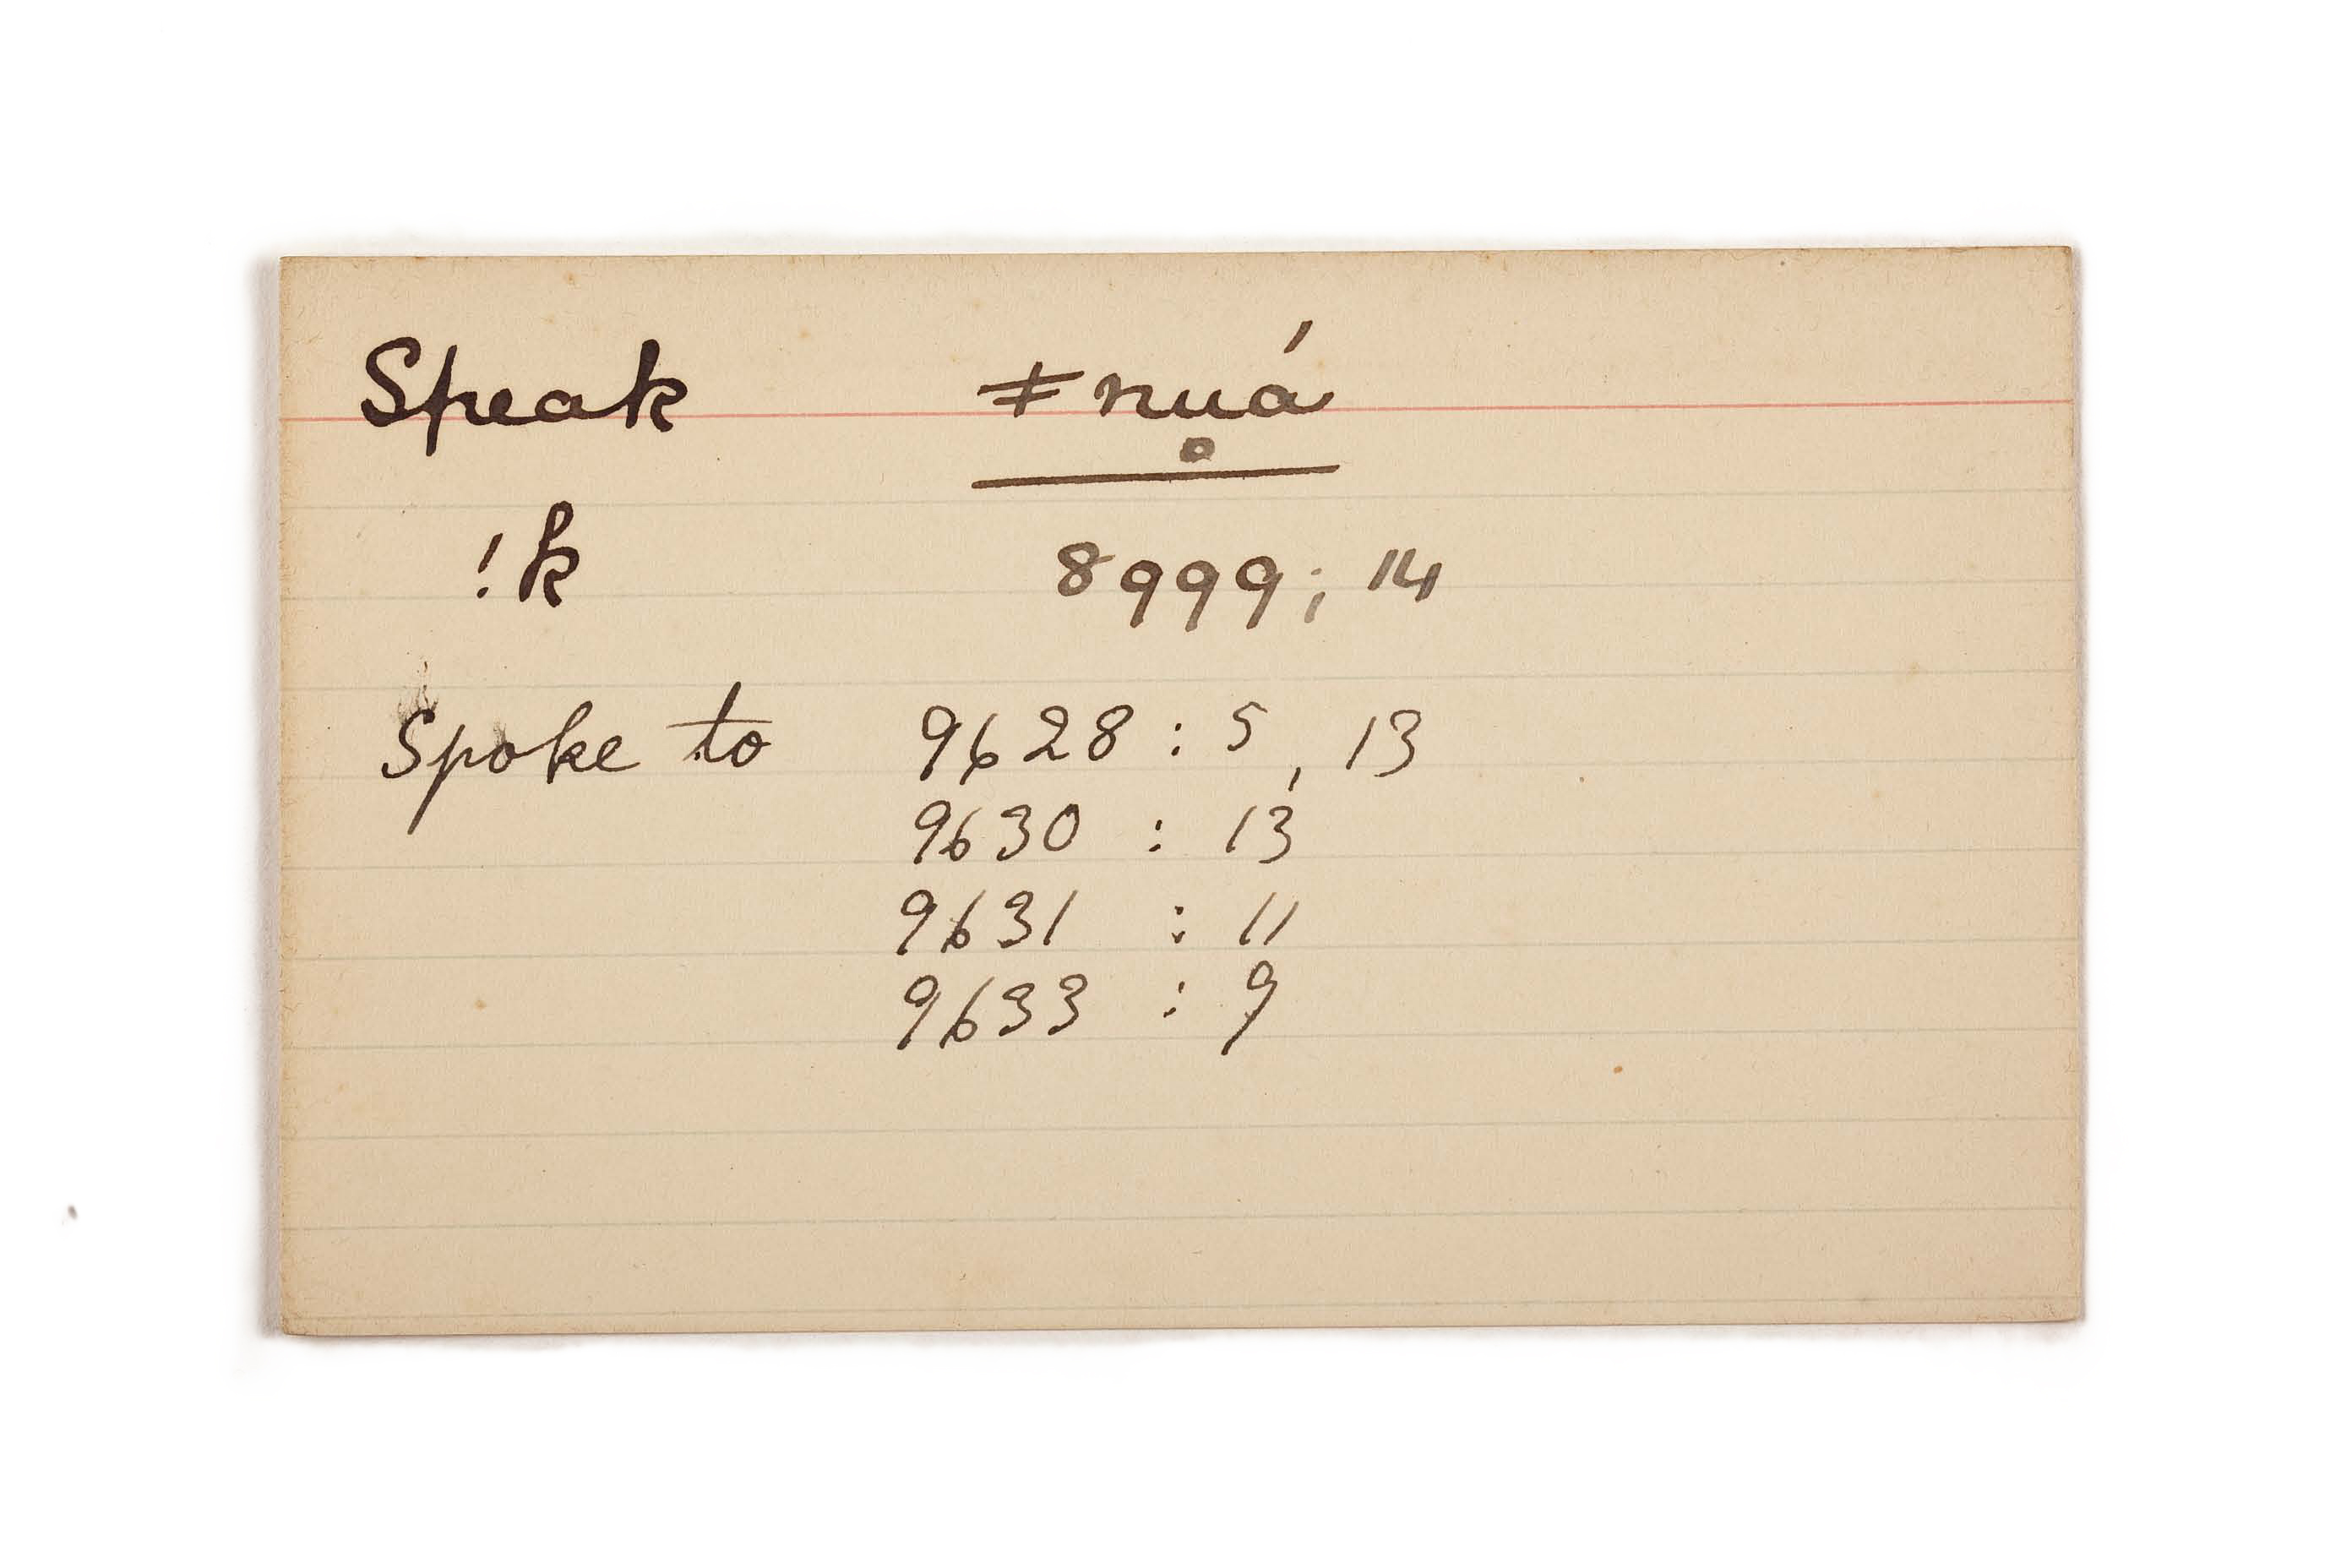 Speak ǂnu̥á
!k 8999; 14
Spoke to 9628 : 5, 13
9630 : 13
9631 : 11
9633 : 9